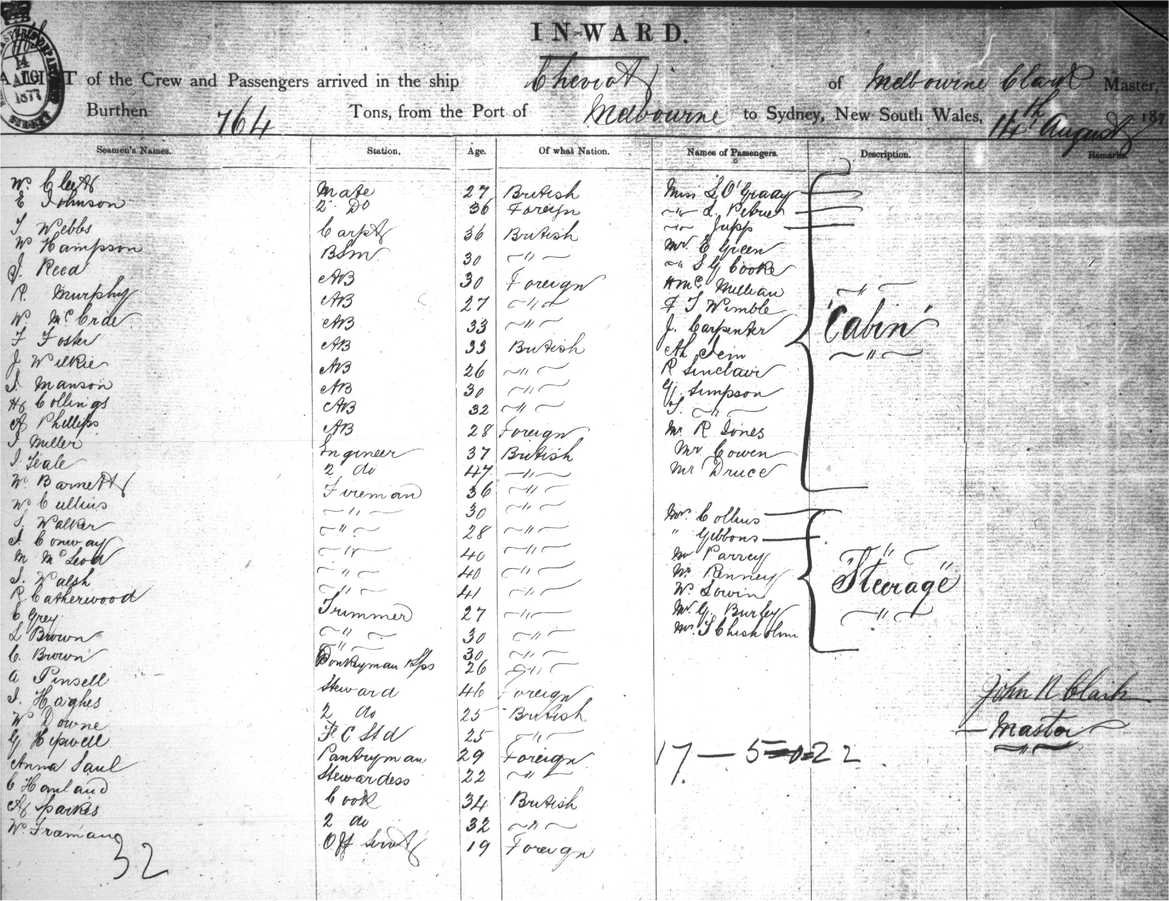 IN-WARD.
of the Crew and Passengers arrived in the ship Cheviot of Melbourne Clark Master,
Burthen 764 Tons, from the Port of Melbourne to Sydney, New South Wales, 14th August 187
14 AUG 1877
Seamen's Names. Station. Age. Of what Nation. Names of Passengers. Description. Remarks.
W Cleet Mate 27 British
E Johnson 2 Do 36 Foreign
T Webbs Carpt 36 British
W Hampson BSm 30 " "
J Reed AB 30 Foreign
R Murphy AB 27 " "
W McCrde AB 33 " "
F Foster AB 33 British
J Wilkie AB 26 " "
J Manson AB 30 " "
Hy Collings AB 32 " "
A Phillips AB 28 Foreign
J Miller Engineer 37 British
J Seale 2 do 47 " "
W Barnett Fireman 36 " "
W Cullins " " 30 " "
J Walker " " 28 " "
J Conway " " 40 " "
M McLeod " " 40 " "
J Walsh " " 41 " "
R Catherwood Trimmer 27 " "
C Grey " " 30 " "
L Brown 30 " "
C Brown Donkeyman 26 " "
A Pinsell Steward 46 Foreign
J Haghes 2 do 25 British
W Downe F C Std 25 " "
G Hipwell Pantryman 29 Foreign
Anna Saul Stewardess 22 " "
C Hanland Cook 34 British
A Parkes 2 do 32 " "
W Framang Off Servt 19 Foreign
32
Miss L O'Grady
" L Petrie
" Jupp
Mr E Green
" S G Cooke
H Mc Millan
F T Wimble
J. Carpenter
Ah Sein
R Sinclair
G Simpson
T. " "
Mr R Jones
Mr Cowen
Mr Druce
"Cabin"
Mr Collins
" Gibbons
Mr Parrey
Mr Renney
W Lowin
Mr G. Burley
Mr T Chisholm
"Steerage"
17 - 5 = 0 = 22
John R Clark
Master